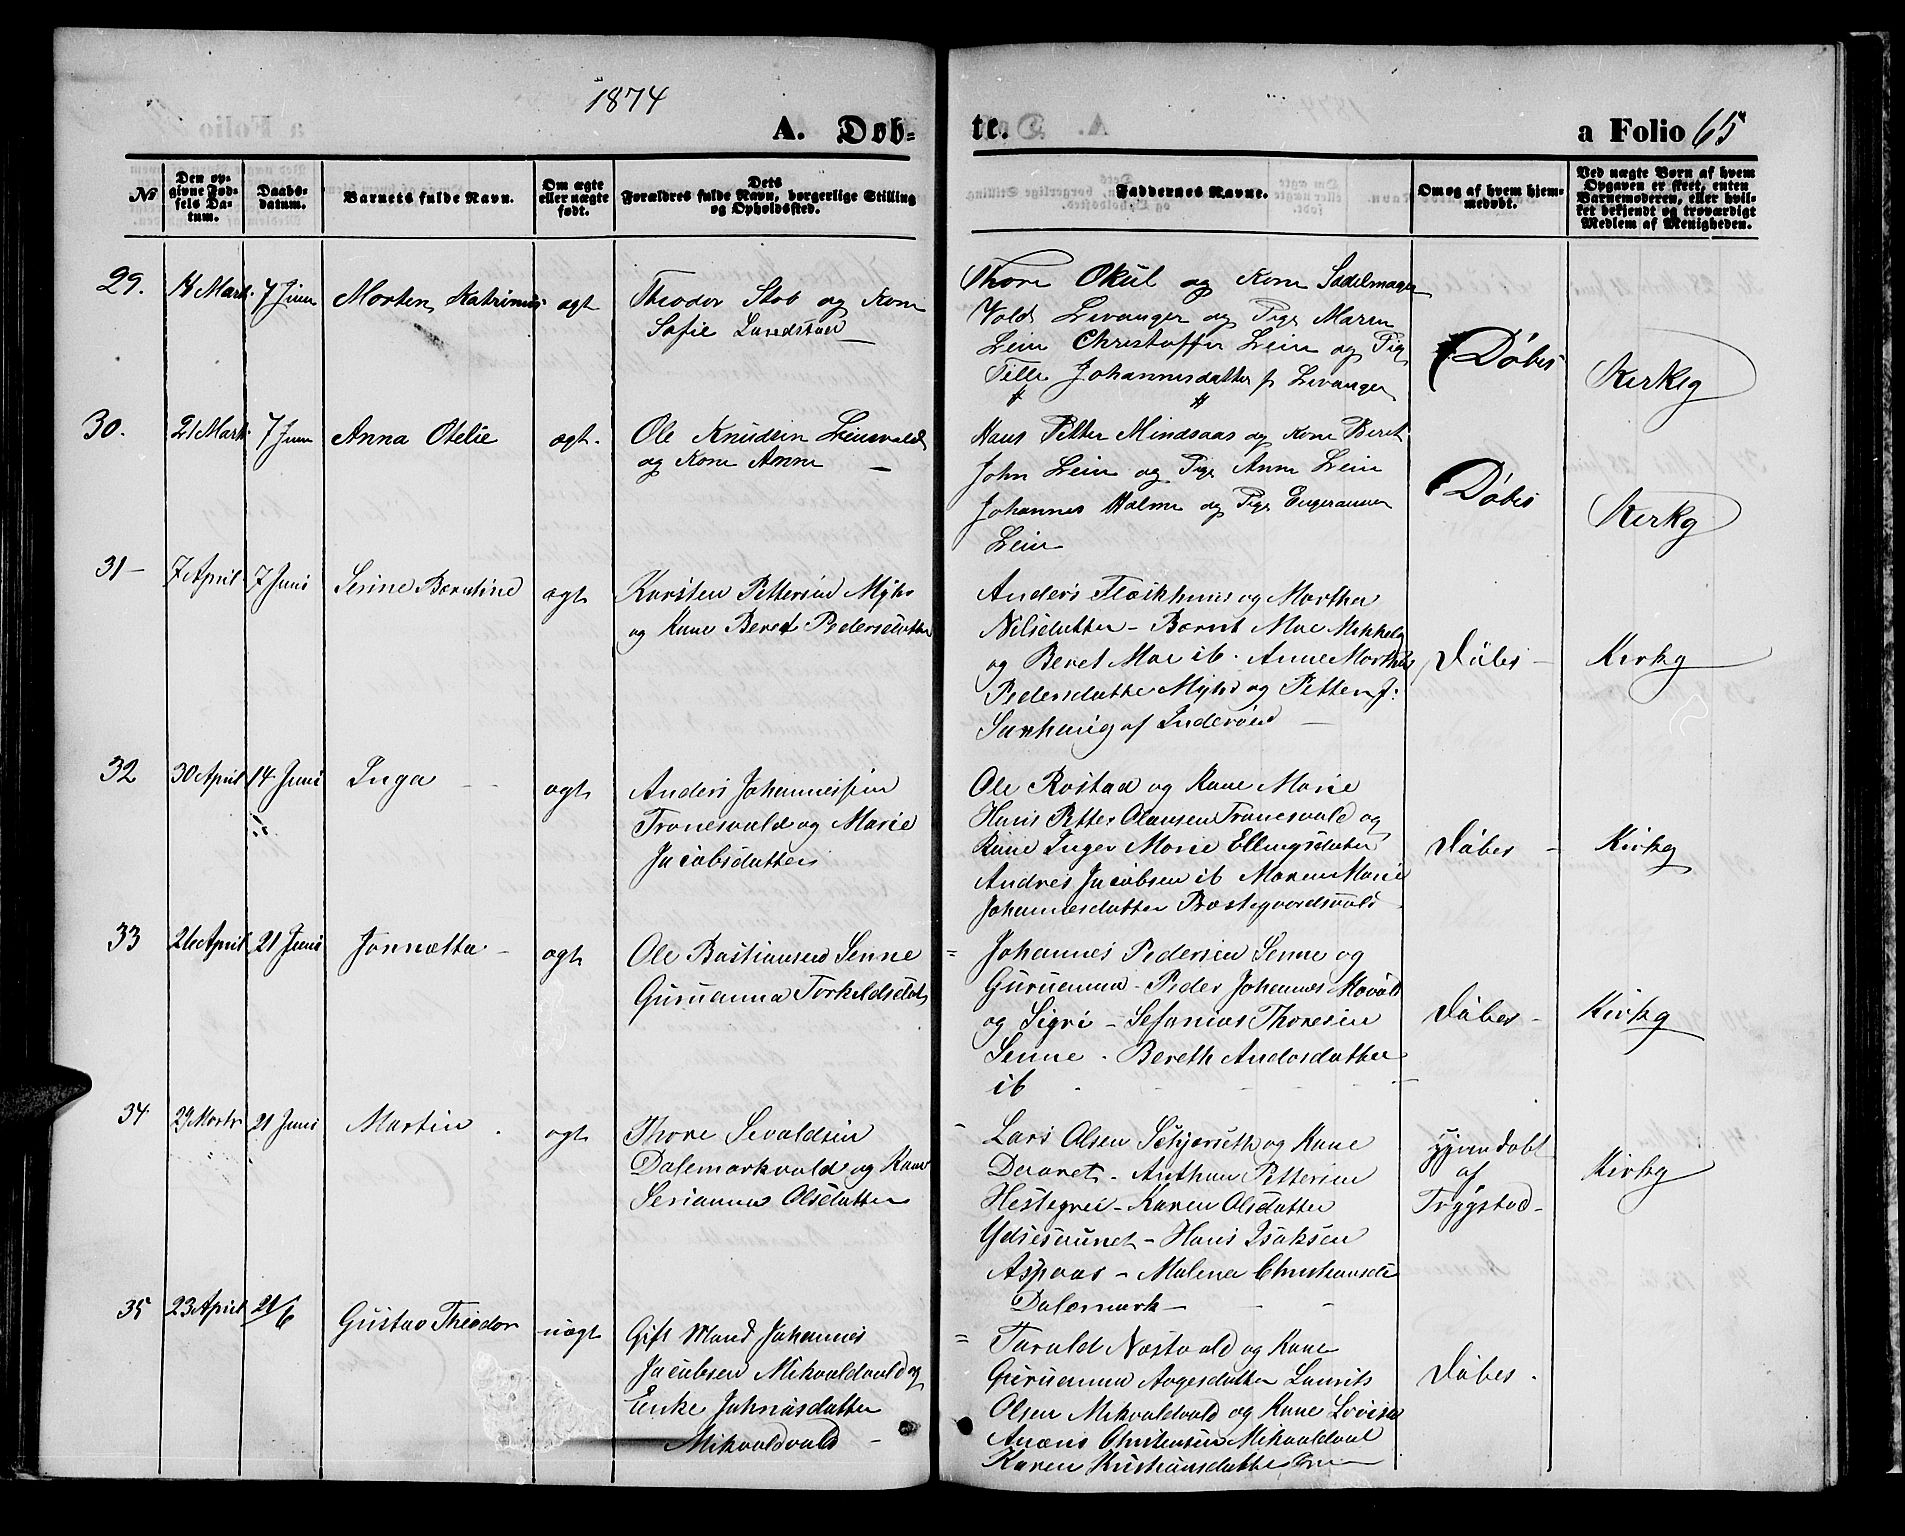 1874
A. Døb-
te.
a Folio 65
No
Den op-
givne Fød-
sels Da-
tum.
Daabs-
datum.
Barnets fulde Navn.
Om ægte
eller nægte
født.
Dets
Forældres fulde Navn, borgerlige Stilling
og Opholdssted.
Faddernes Navne.
Om og af hvem hjem-
medøbt.
Ved nægte Børn af hvem
Opgaven er skeet, enten
Barnemoderen, eller hvil-
ket bekjendt og troværdigt
Medlem af Menigheden.
29.
14 Mart.
7 Juni
Morten Katrinus
ægt
Theodor Stob og Kone
Sofie Lundstad
Thore Okul og Kone Sadelmager
Vold Levanger og Pige Maren
Lein Christoffer Lein og Pige
Johannesdatter fr Levanger
Døbt
Kirkg
30.
21 Mart.
7 Juni
Anna Otelie
ægt.
Ole Knudsen Leinsvald
og Kone Anne
Hans Petter Mindsaas og Kone Beret
John Lein og Pige Anne Lein
Johannes Halme og Pige
Lein
Døbt
Kirkg
31
7 April
7 Juni
Serine Berntine
ægt
Karsten Pettersen Myhr
og Kone Beret Pedersdatter
Anders Floikhuus og Martha
Nilsdatter - Bernt Moe
og Beret Moe ib. Anne Martha
Pedersdatter Myhr og Petter J.
af Inderøen
Døbt
Kirkg
32
30 April
14 Juni
Inga
ægt
Anders Johannessen
Tronesvald og Marie
Jacobsdatter
Ole Rostad og Kone Marie
Hans Petter Olausen Tronesvald og
Kone Inger Marie Ellingsdatter
Andres Jacobsen ib Maren Marie
Johannesdatter
Døbes
Kirkg
33
26 April
21 Juni
Jonnætta
ægt
Ole Bastiansen Senne
Guruanna Torkildsdatt
Johannes Pedersen Senne og
Guruanna - Peder Johannes Movald
og Sigri - Sefanias Thoresen
Senne - Bereth Andersdatter
ib
Døbes
Kirkg
34
29 Marts
21 Juni
Martin
ægt
Thore Sevaldsen
Dalemarkvald og Kone
Serianna Olsdatter
Lars Olsen og Kone
- Anthon Pettersen
Hestegrei - Karen Olsdatter
Ydsesaunet - Hans Isaksen
Aspaas - Malena Christiansdt
Dalemark
Hjemdøbt
af
Trygstad
Kirkg
35
23 April
21/6
Gustav Theodor
uægt
Gift Mand Johannes
Jacobsen Mikvoldvald og
Enke Johnasdatter
Mikvoldvald
Tarald Næstvold og Kone
Guruanna Aagesdatter Laurits
Olsen Mikvoldvald og Kone Lovise
Christensen Mikvoldval
Karen Kristiansdatter
Døbes